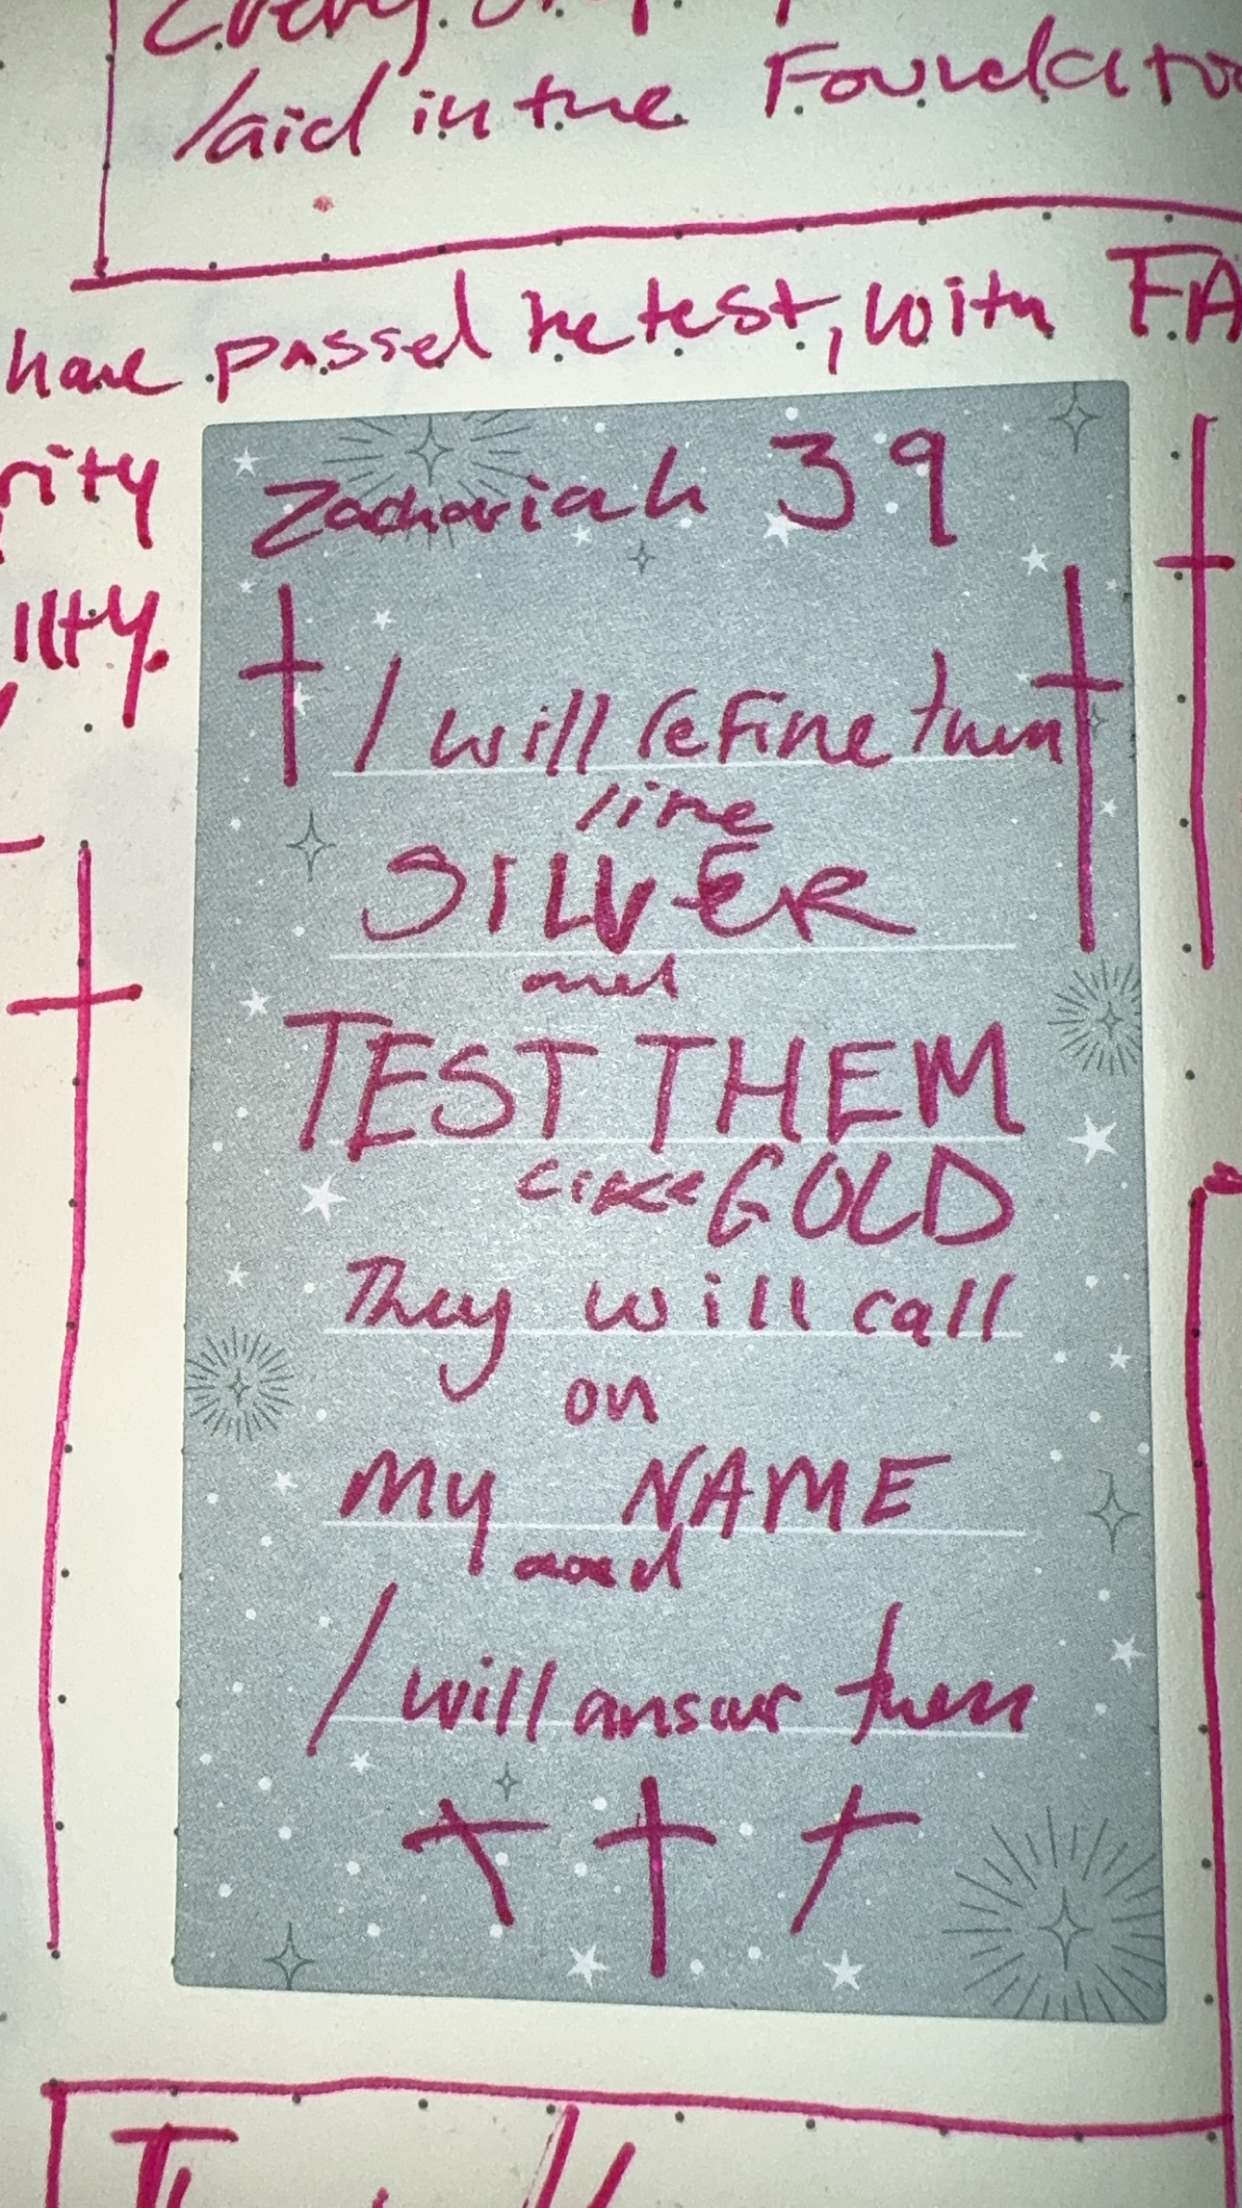 laid in the
have passed the test, with
Zachariah 39
I will refine them
like
SILVER
and
TEST THEM
LIKE GOLD
They will call
on
My NAME
and
I will answr them